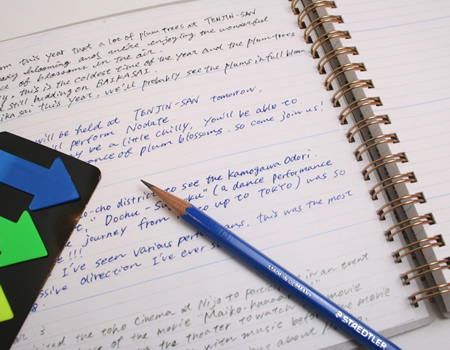 om this year that a lot of plum trees at TENJIN-SAN
blooming and we're enjoying the wonderful
of blossoms in the air.
, this is the coldest time of the year and the plum trees
still holding on BAIKASAI.
this year, we'll probably see the plums in full bloom
will be held at TENJIN-SAN tomorrow.
'll perform Nodate
be a little chilly, you'll be able to
of plum blossoms. so come join us!
-cho district to see the Kamogawa Odori.
(a dance performance
journey from up to TOKYO) was so
!!!
I've seen various . this was the most
direction I've ever
3
the toho Cinema at Nijo to in an event
of the movie
the theater to watch movie
with music before
about
MADE IN GERMANY
STAEDTLER